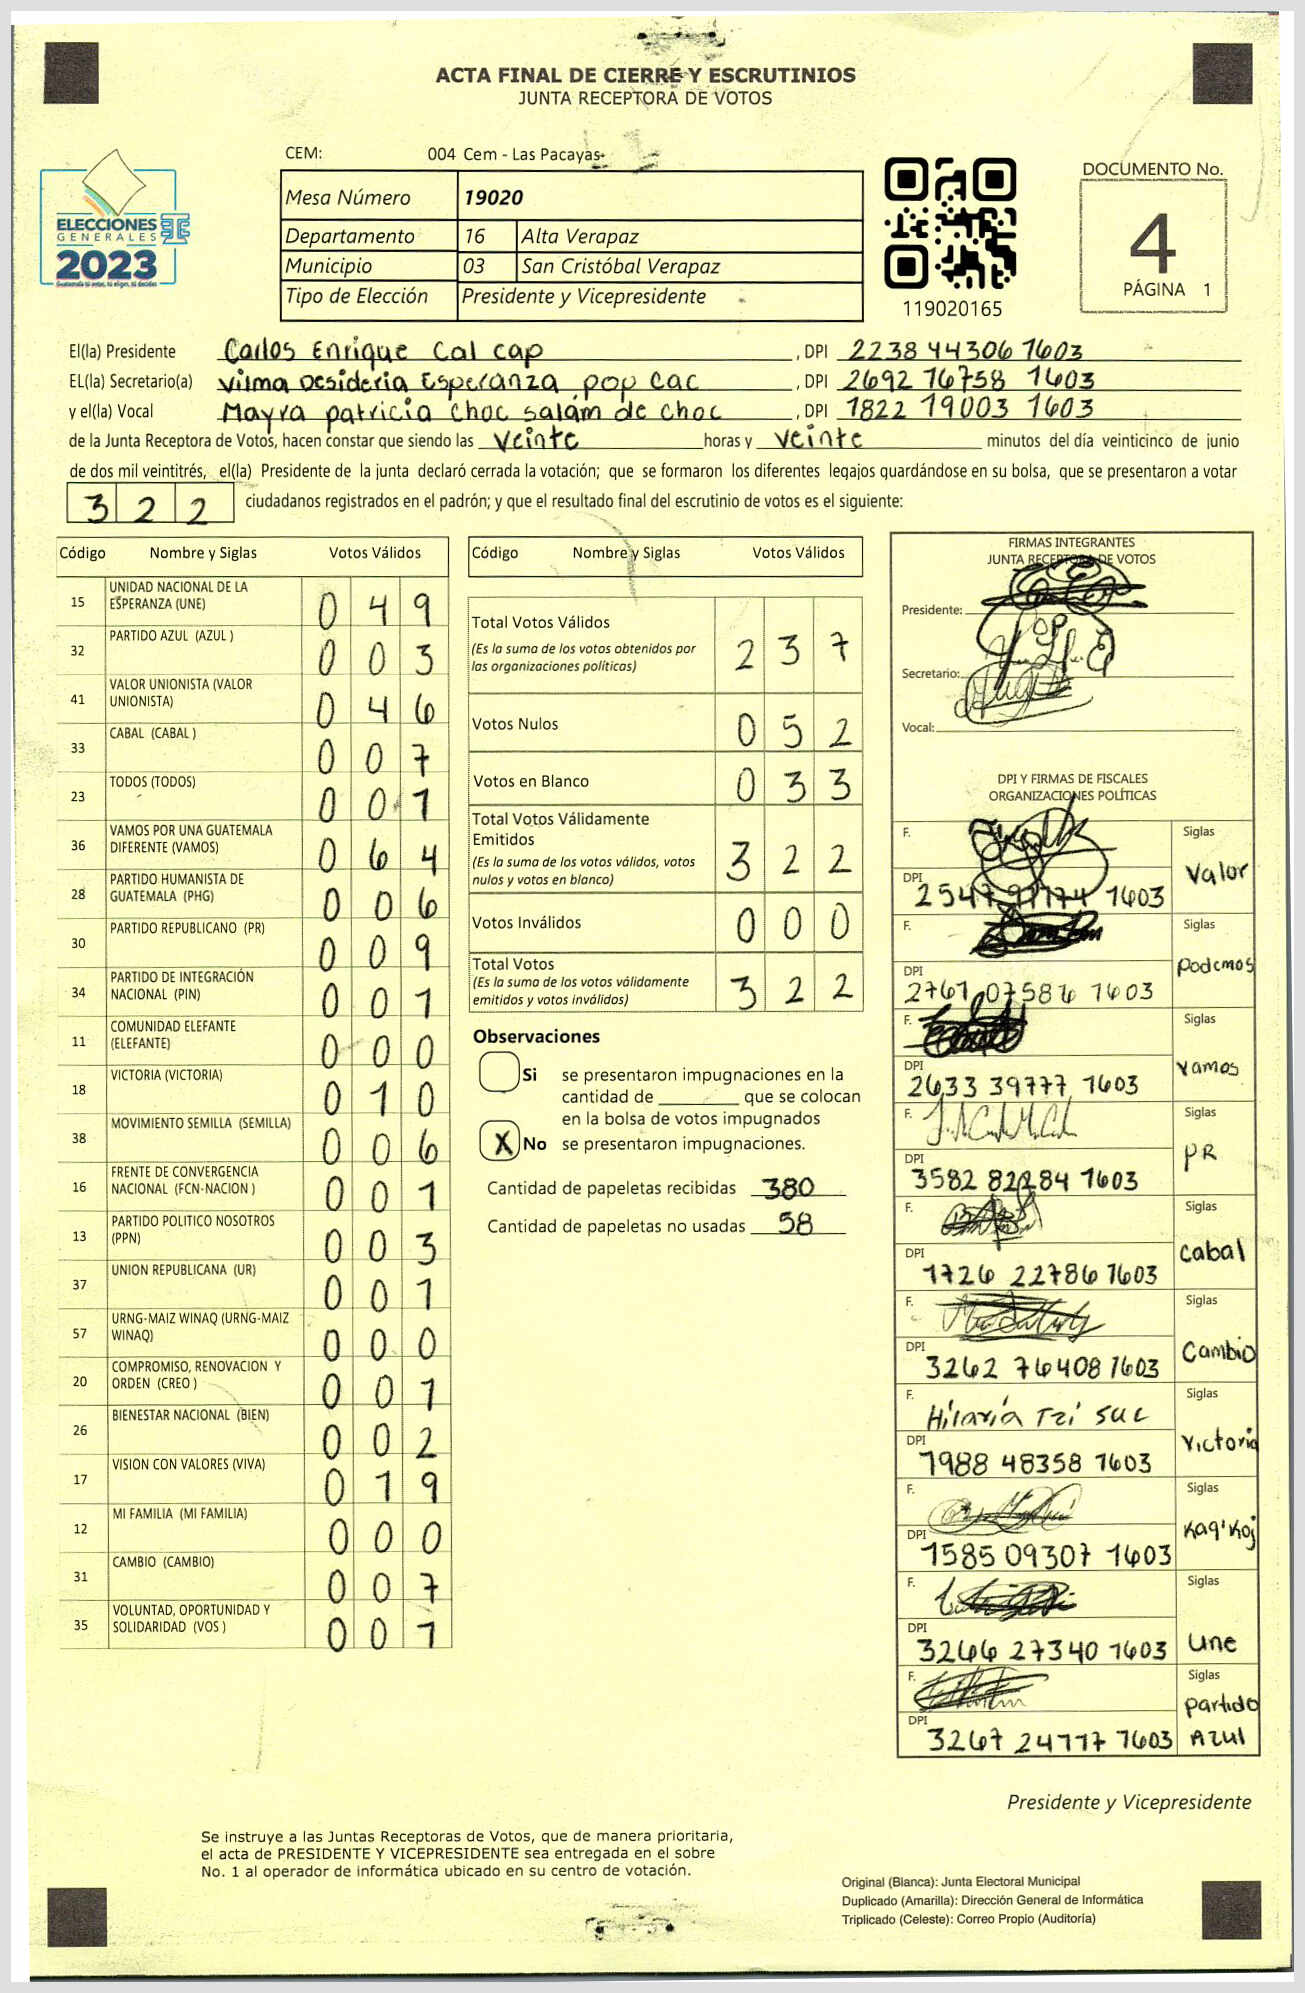 ACTA FINAL DE CIERRE Y ESCRUTINIOS
JUNTA RECEPTORA DE VOTOS
CEM: 004 Cem - Las Pacayas
ELECCIONES
GENERALES
2023
Mesa Número 19020
Departamento 16 Alta Verapaz
Municipio 03 San Cristóbal Verapaz
Tipo de Elección Presidente y Vicepresidente
119020165
DOCUMENTO No.
4
PÁGINA 1
El(la) Presidente Carlos Enrique Cal cap , DPI 2238 44306 1603
EL(la) Secretario(a) Vilma Desideria Esperanza pop cac , DPI 2692 16758 1603
y el(la) Vocal Mayra patricia choc salám de choc , DPI 1822 19003 1603
de la Junta Receptora de Votos, hacen constar que siendo las veinte horas y veinte minutos del día veinticinco de junio
de dos mil veintitrés, el(la) Presidente de la junta declaró cerrada la votación; que se formaron los diferentes legajos guardándose en su bolsa, que se presentaron a votar
322 ciudadanos registrados en el padrón; y que el resultado final del escrutinio de votos es el siguiente:
Código Nombre y Siglas Votos Válidos
15 UNIDAD NACIONAL DE LA ESPERANZA (UNE) 0 4 9
32 PARTIDO AZUL (AZUL ) 0 0 3
41 VALOR UNIONISTA (VALOR UNIONISTA) 0 4 6
33 CABAL (CABAL ) 0 0 7
23 TODOS (TODOS) 0 0 1
36 VAMOS POR UNA GUATEMALA DIFERENTE (VAMOS) 0 6 4
28 PARTIDO HUMANISTA DE GUATEMALA (PHG) 0 0 6
30 PARTIDO REPUBLICANO (PR) 0 0 9
34 PARTIDO DE INTEGRACIÓN NACIONAL (PIN) 0 0 1
11 COMUNIDAD ELEFANTE (ELEFANTE) 0 0 0
18 VICTORIA (VICTORIA) 0 1 0
38 MOVIMIENTO SEMILLA (SEMILLA) 0 0 6
16 FRENTE DE CONVERGENCIA NACIONAL (FCN-NACION ) 0 0 1
13 PARTIDO POLITICO NOSOTROS (PPN) 0 0 3
37 UNION REPUBLICANA (UR) 0 0 1
57 URNG-MAIZ WINAQ (URNG-MAIZ WINAQ) 0 0 0
20 COMPROMISO, RENOVACION Y ORDEN (CREO ) 0 0 1
26 BIENESTAR NACIONAL (BIEN) 0 0 2
17 VISION CON VALORES (VIVA) 0 1 9
12 MI FAMILIA (MI FAMILIA) 0 0 0
31 CAMBIO (CAMBIO) 0 0 7
35 VOLUNTAD, OPORTUNIDAD Y SOLIDARIDAD (VOS ) 0 0 1
Código Nombre y Siglas Votos Válidos
Total Votos Válidos 2 3 7
(Es la suma de los votos obtenidos por
las organizaciones políticas)
Votos Nulos 0 5 2
Votos en Blanco 0 3 3
Total Votos Válidamente
Emitidos 3 2 2
(Es la suma de los votos válidos, votos
nulos y votos en blanco)
Votos Inválidos 0 0 0
Total Votos 3 2 2
(Es la suma de los votos válidamente
emitidos y votos inválidos)
Observaciones
Si se presentaron impugnaciones en la
cantidad de ________ que se colocan
en la bolsa de votos impugnados
X No se presentaron impugnaciones.
Cantidad de papeletas recibidas 380
Cantidad de papeletas no usadas 58
FIRMAS INTEGRANTES
JUNTA RECEPTORA DE VOTOS
Presidente:
Secretario:
Vocal:
DPI Y FIRMAS DE FISCALES
ORGANIZACIONES POLÍTICAS
F. Siglas
Valor
DPI 2547 91774 1603
F. Siglas
Podemos
DPI 2761 07586 1603
F. Siglas
Vamos
DPI 2633 39777 1603
F. Siglas
PR
DPI 3582 82284 1603
F. Siglas
Cabal
DPI 1726 22786 1603
F. Siglas
Cambio
DPI 3262 76408 1603
F. Hilaria Tzi suc Siglas
Victoria
DPI 1988 48358 1603
F. Siglas
Kaq'Koj
DPI 1585 09307 1603
F. Siglas
Une
DPI 3266 27340 1603
F. Siglas
Partido
Azul
DPI 3267 24777 1603
Presidente y Vicepresidente
Se instruye a las Juntas Receptoras de Votos, que de manera prioritaria,
el acta de PRESIDENTE Y VICEPRESIDENTE sea entregada en el sobre
No. 1 al operador de informática ubicado en su centro de votación.
Original (Blanca): Junta Electoral Municipal
Duplicado (Amarilla): Dirección General de Informática
Triplicado (Celeste): Correo Propio (Auditoría)